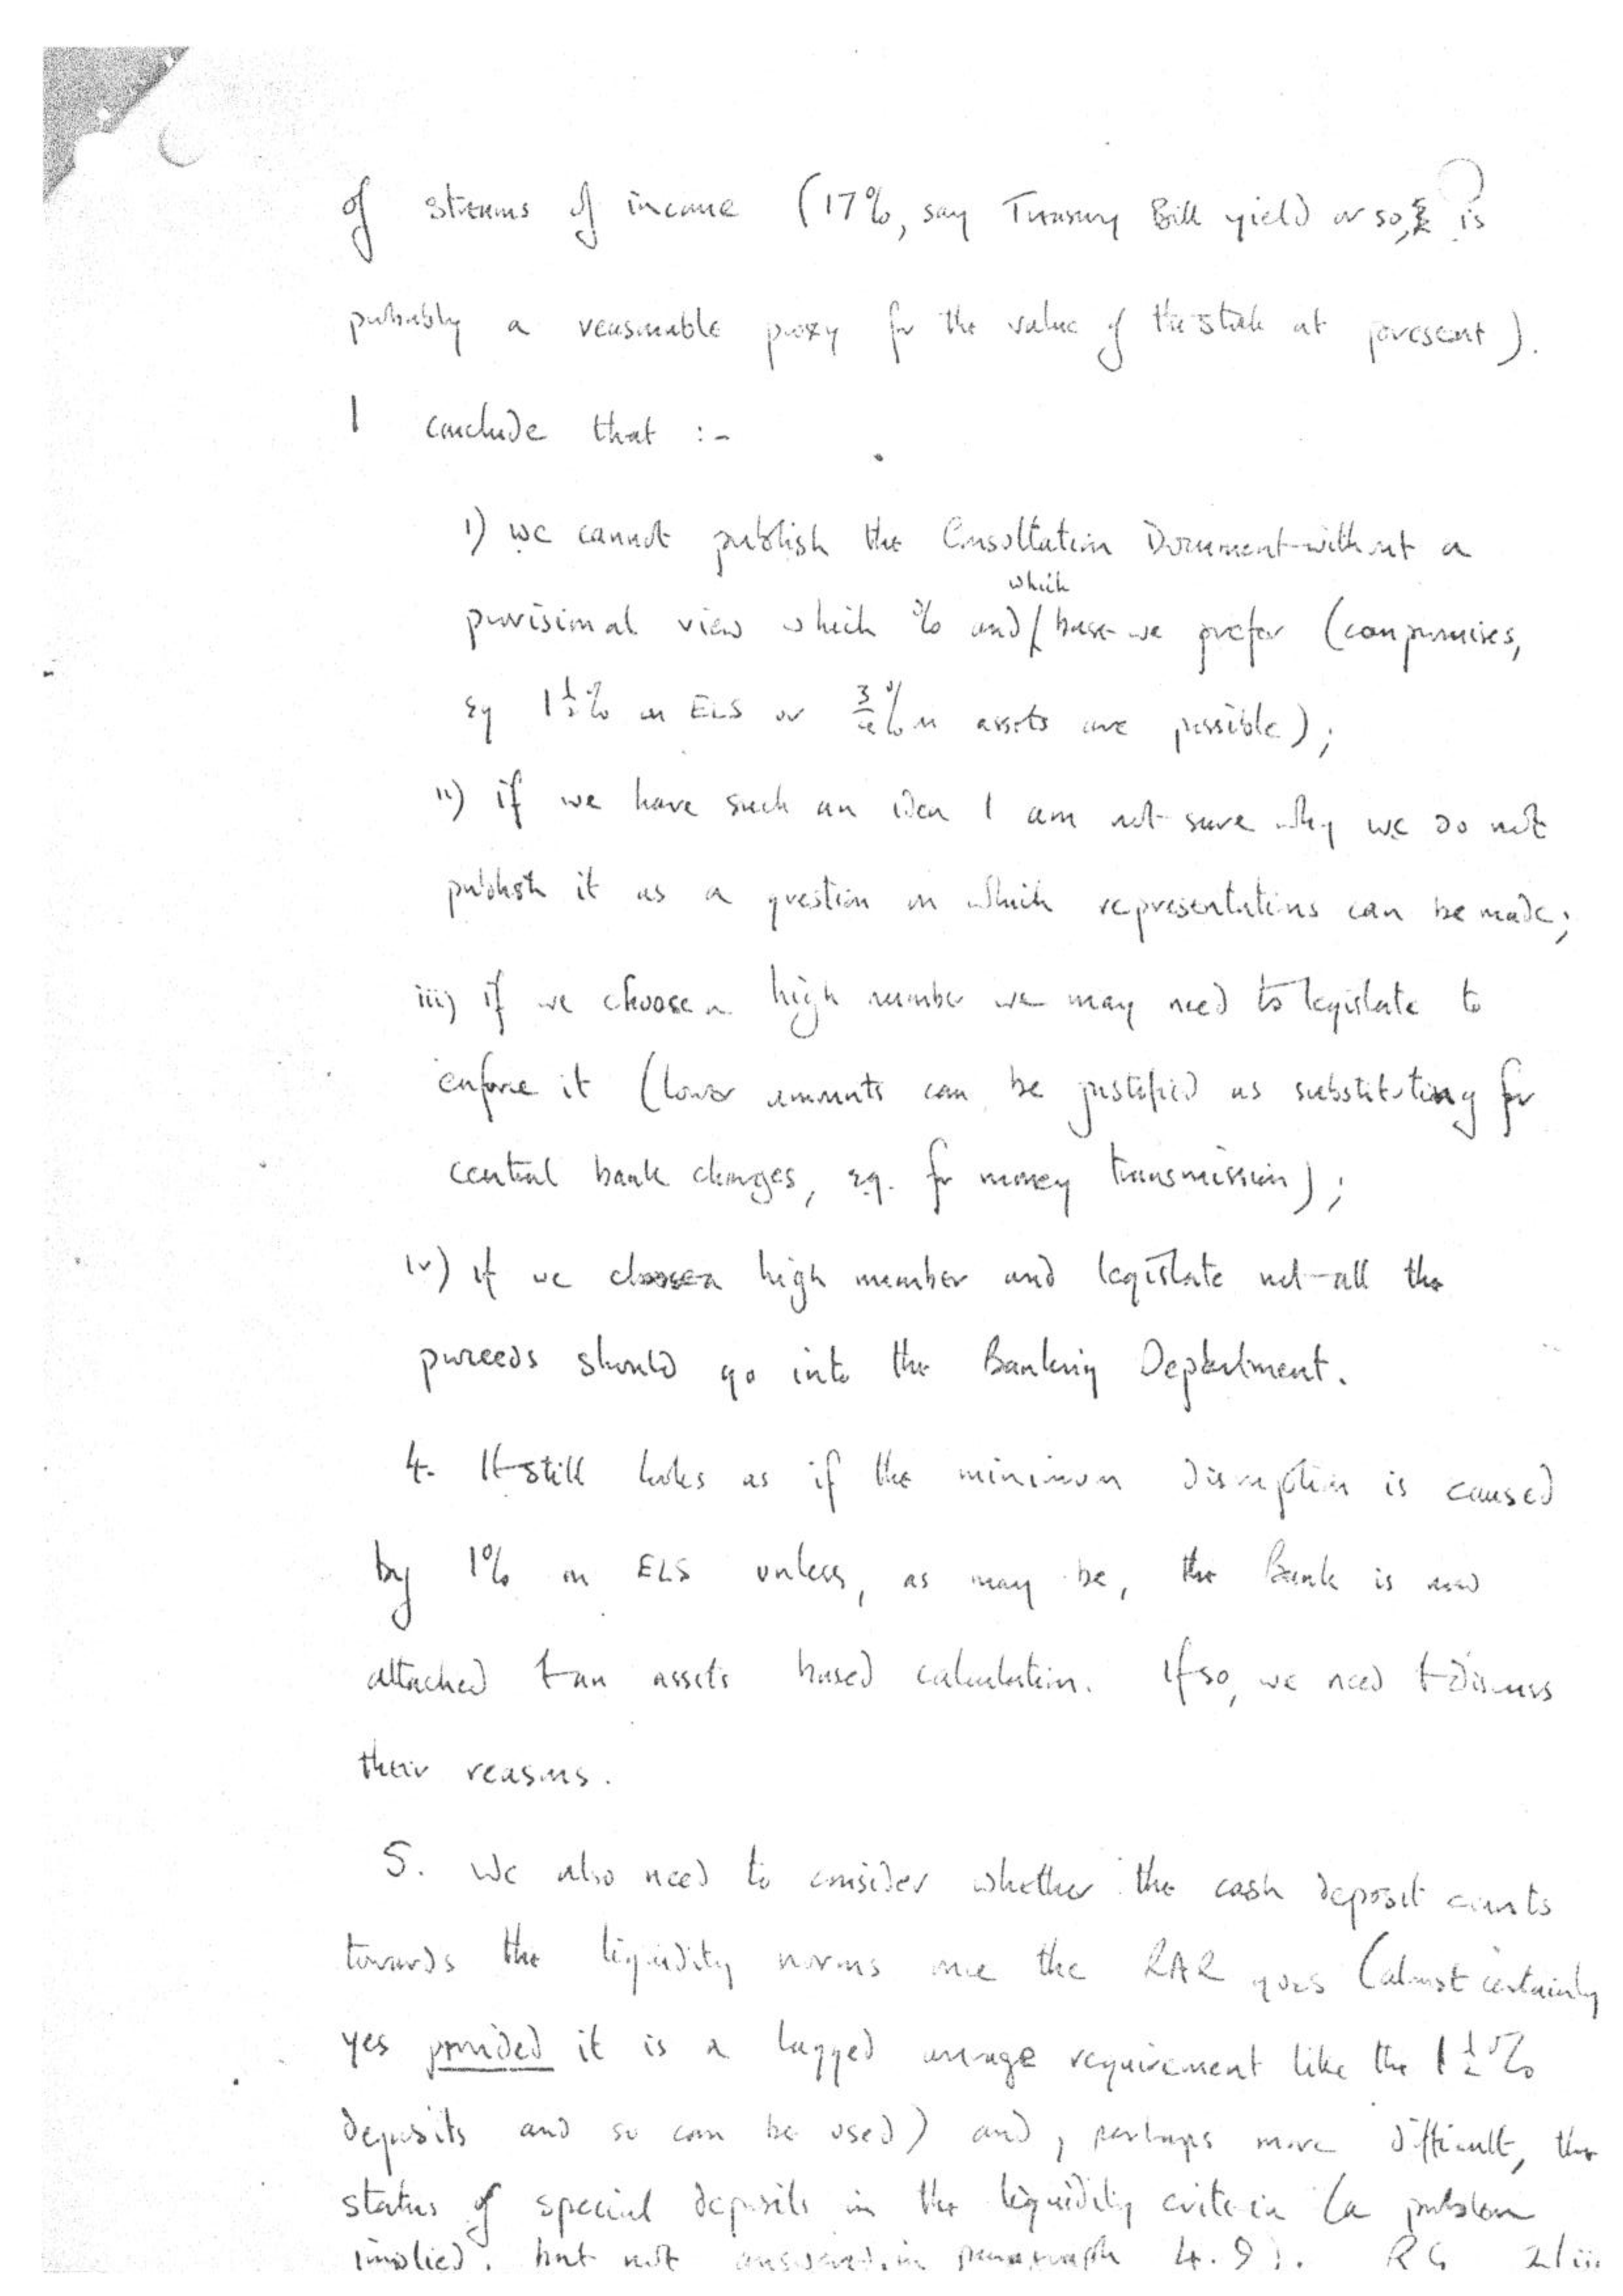 of streams of income (17%, say Treasury Bill yield or so, is
probably a reasonable proxy for the value of the stake at present).
I conclude that :-
i) we cannot publish the Consultation Document without a
which
provisional view which % and / base we prefer (compromises,
eg 1½% on ELS or ¾% on assets are possible);
ii) if we have such an idea I am not sure why we do not
publish it as a question on which representations can be made;
iii) if we choose a high number we may need to legislate to
enforce it (lower amounts can be justified as substituting for
central bank charges, eg. for money transmission);
iv) if we choose a high number and legislate not all the
proceeds should go into the Banking Department.
4. It still looks as if the minimum disruption is caused
by 1% on ELS unless, as may be, the Bank is now
attached to an assets based calculation. If so, we need to discuss
their reasons.
5. We also need to consider whether the cash deposit counts
towards the liquidity norms once the RAR goes (almost certainly
yes provided it is a lagged average requirement like the 1½%
deposits and so can be used) and, perhaps more difficult, the
status of special deposits in the liquidity criteria (a problem
implied, but not answered, in paragraph 4.9). RG 2/iii